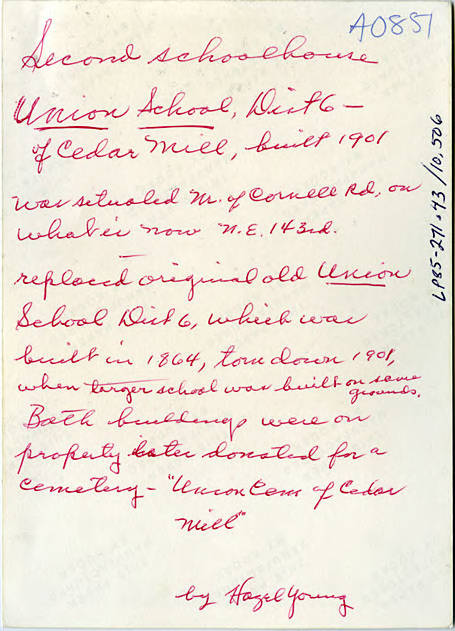 A0851
Second schoolhouse
Union School, Dist 6 -
of Cedar Mill, built 1901
was situated N. of Cornell Rd, on
what is now N.E. 143rd.
replaced original old Union
School Dist 6, which was
built in 1864, torn down 1901,
when larger school was built on same
grounds.
Both buildings were on
property later donated for a
cemetery - "Union Cem of Cedar
Mill"
by Hazel Young
LP85-271.43/10,506